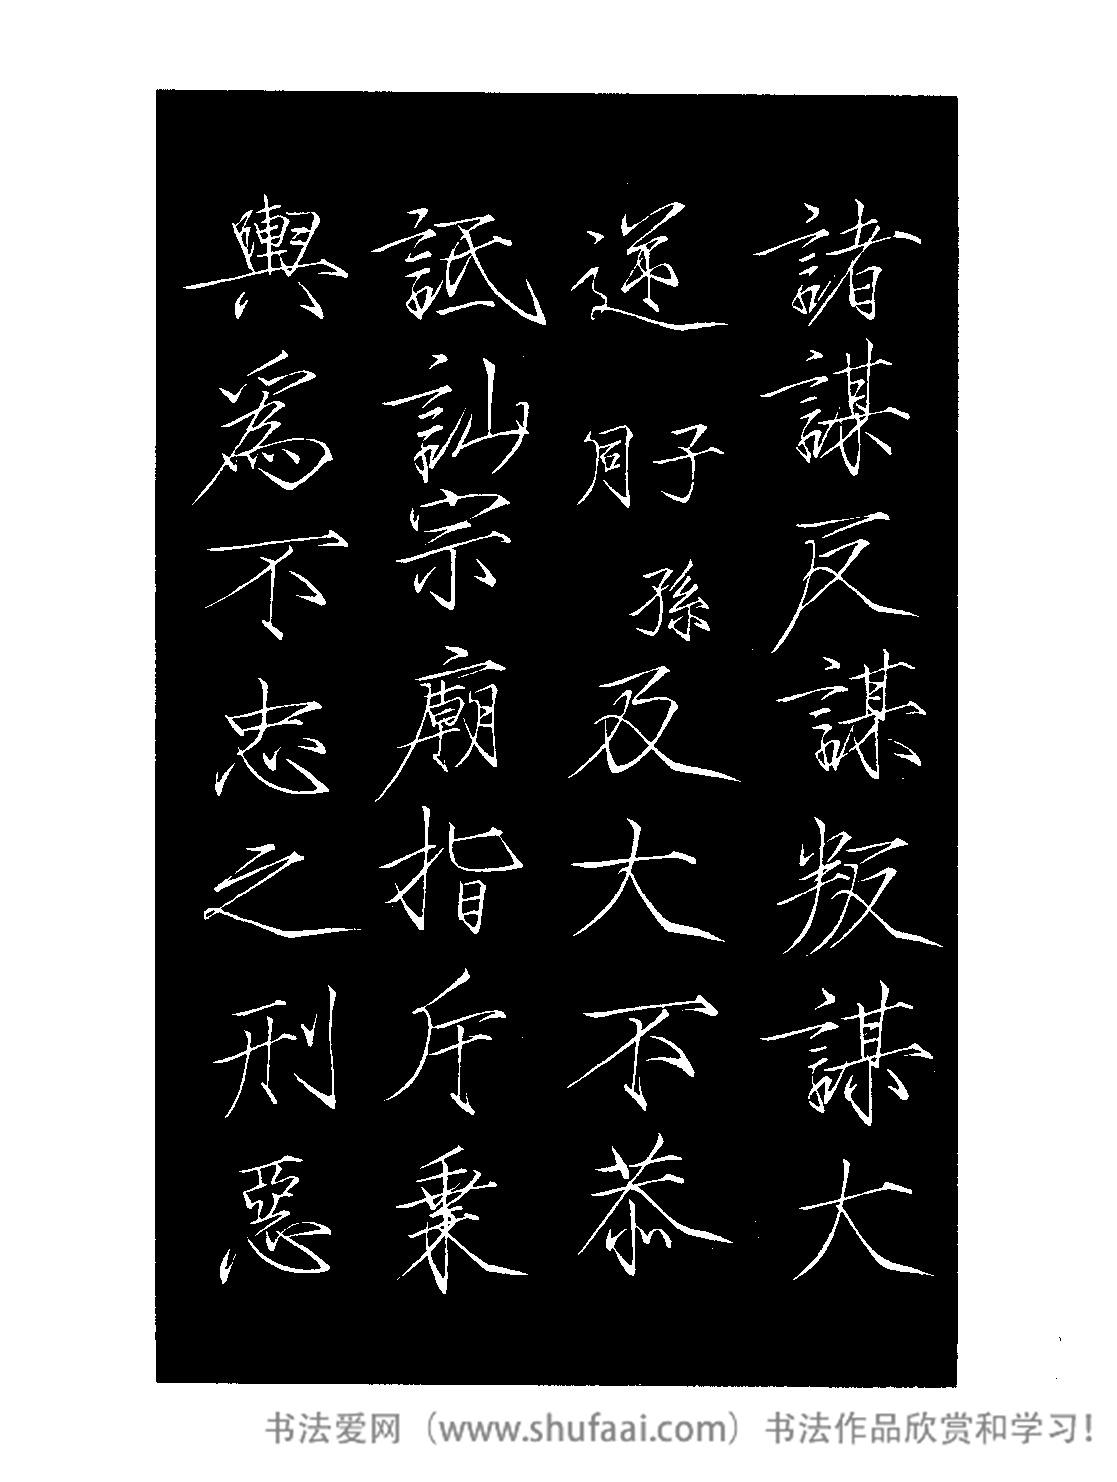 諸謀反謀叛謀大
逆子孫同及大不恭
詆訕宗廟指斥乗
輿爲不忠之刑惡
书法爱网（www.shufaai.com）书法作品欣赏和学习！